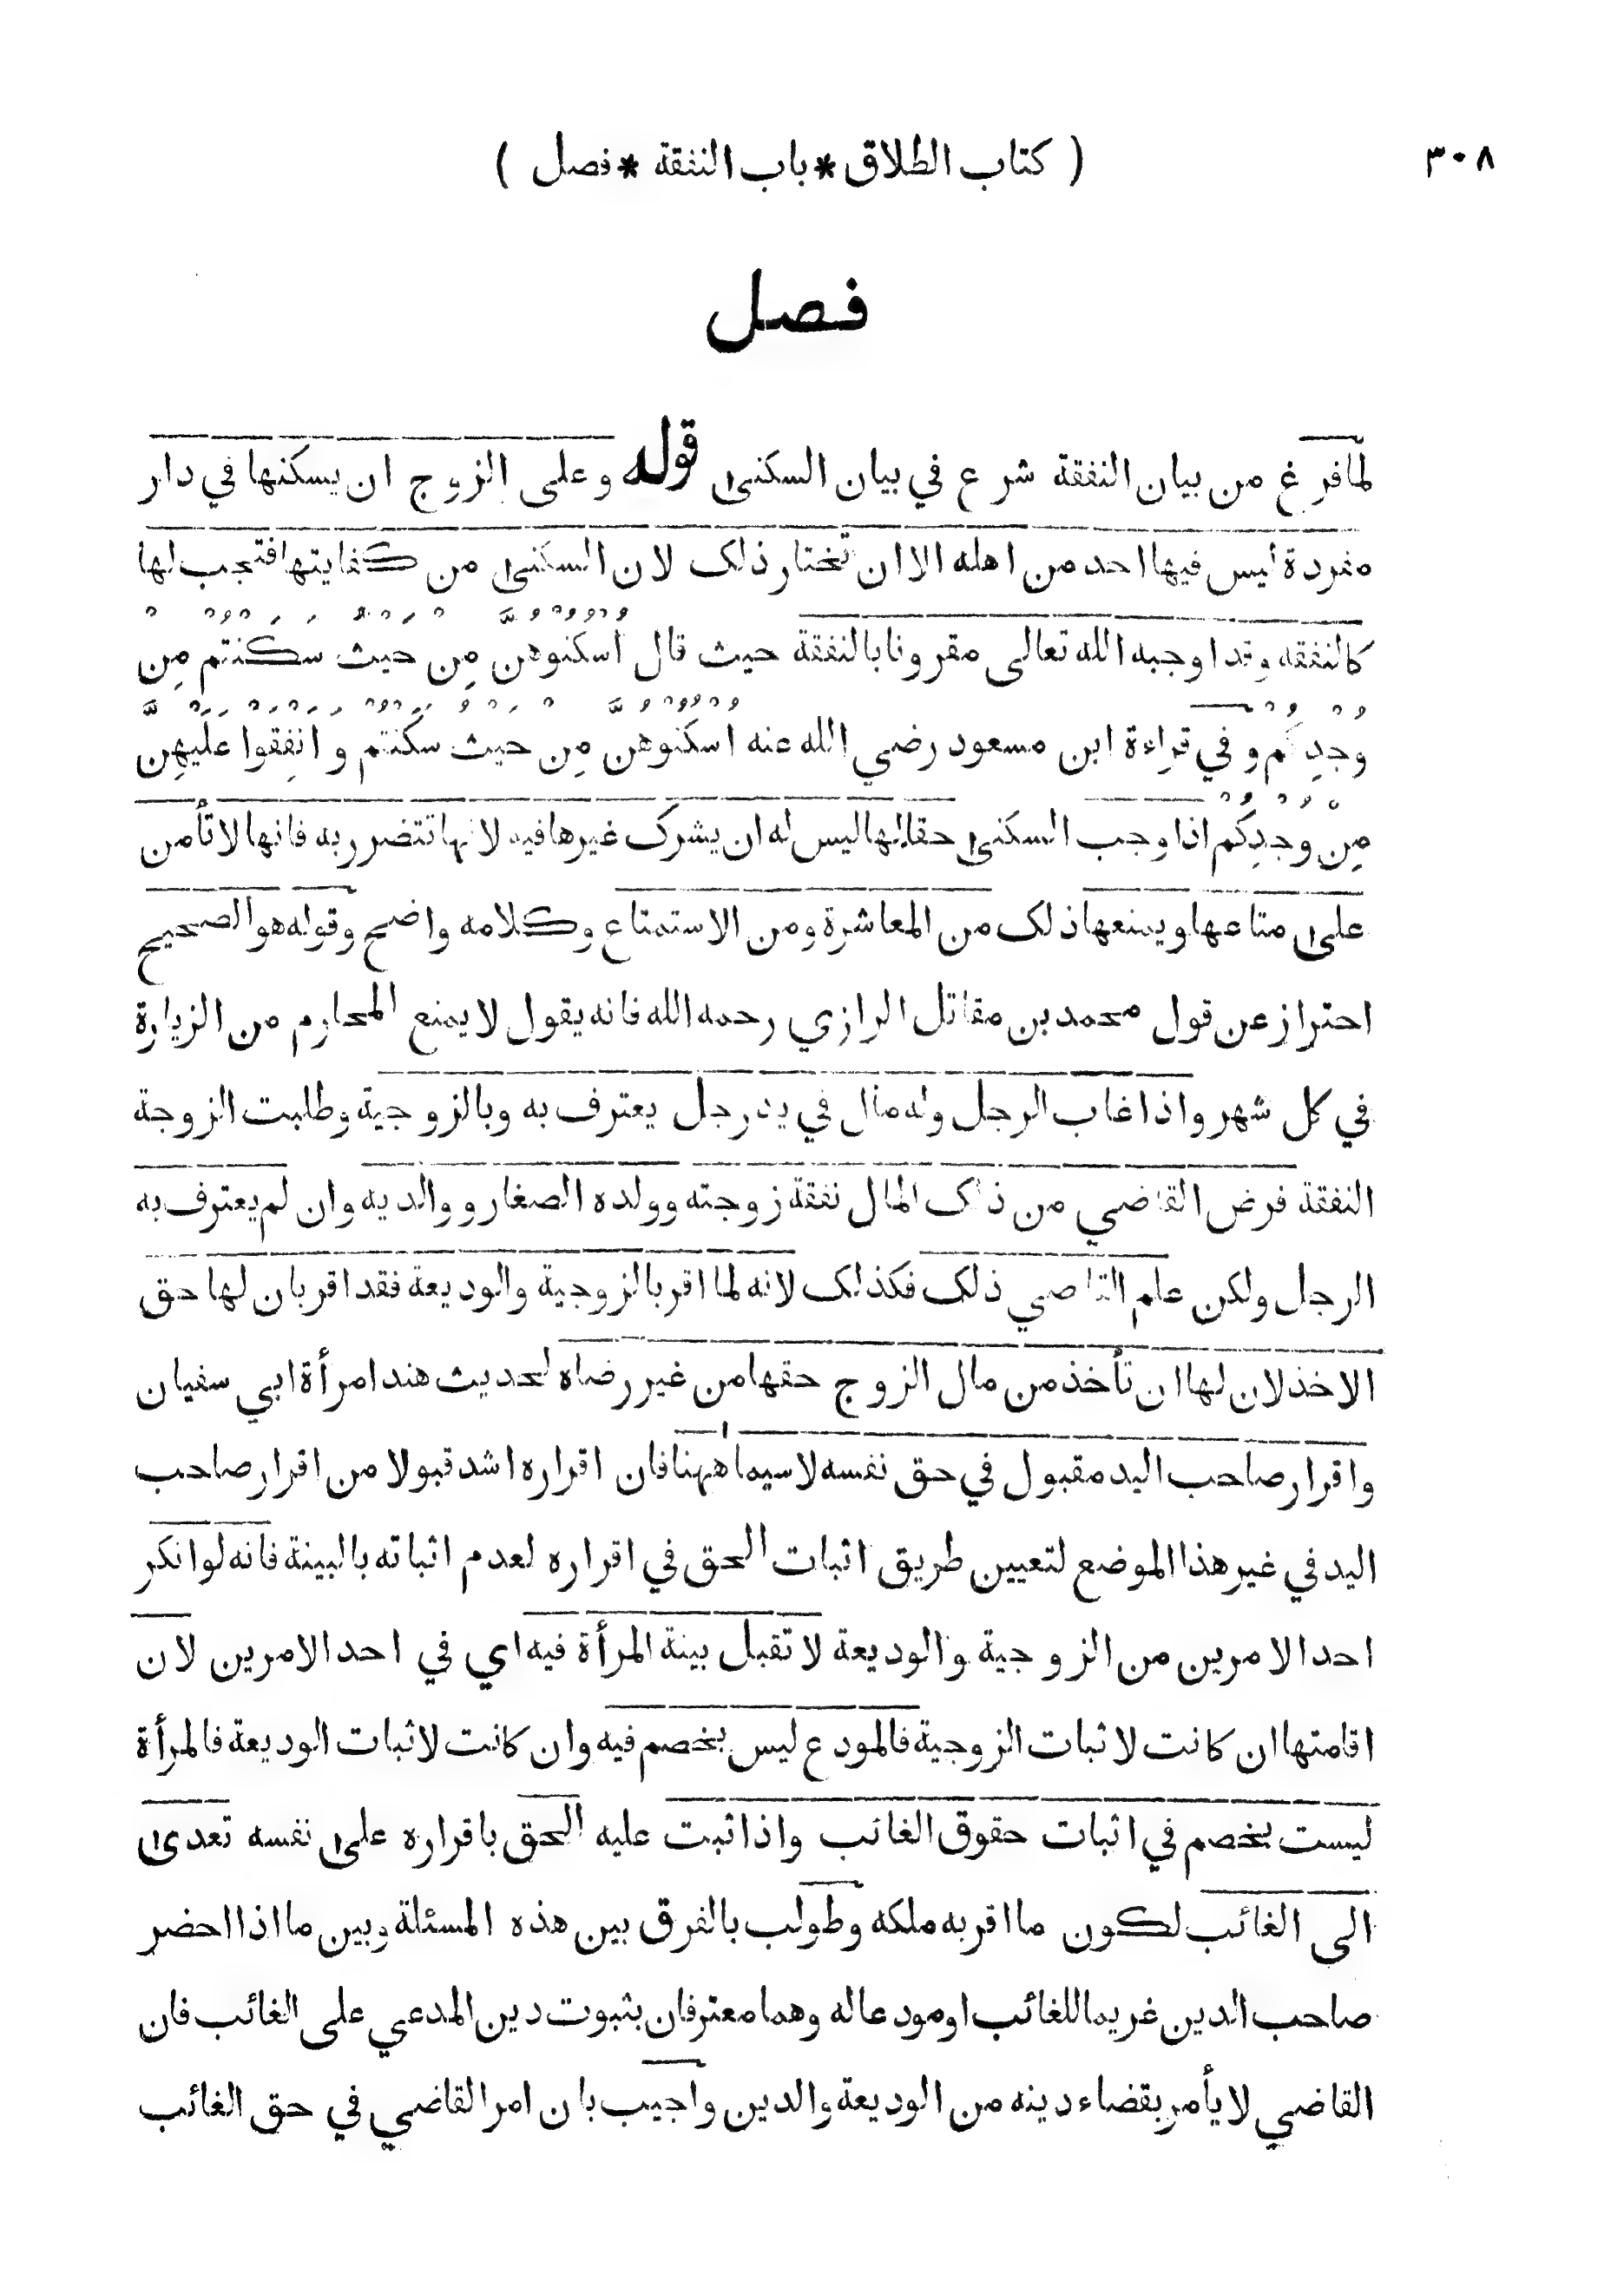 ( كتاب الطلاق * باب النفقة * فصل ) ٣٠٨
فصل
لما فرغ من بيان النفقة شرع في بيان السكنى قوله وعلى الزوج ان يسكنها في دار
مفردة ليس فيها احد من اهله الا ان تختار ذلك لان السكنى من كفايتها فتجب لها
كالنفقه وقد اوجبه الله تعالى مقرونا بالنفقة حيث قال اَسْكِنُوْهُنَّ مِنْ حَيْثُ سَكَنْتُمْ مِنْ
وُجْدِكُمْ وفي قراءة ابن مسعود رضي الله عنه اَسْكِنُوْهُنَّ مِنْ حَيْثُ سَكَنْتُمْ وَاَنْفِقُوْا عَلَيْهِنَّ
مِنْ وُجْدِكُمْ اذا وجب السكنى حقا لها ليس له ان يشرك غيرها فيه لانها تتضرر به فانها لا تأمن
على متاعها ويمنعها ذلك من المعاشرة ومن الاستمتاع وكلامه واضح وقوله هو الصحيح
احتراز عن قول محمد بن مقاتل الرازي رحمه الله فانه يقول لا يمنع المحارم من الزيارة
في كل شهر واذا غاب الرجل وله مال في يد رجل يعترف به وبالزوجية وطلبت الزوجة
النفقة فرض القاضي من ذلك المال نفقة زوجته وولده الصغار ووالديه وان لم يعترف به
الرجل ولكن علم القاضي ذلك فكذلك لانه لما اقر بالزوجية والوديعة فقد اقر بان لها حق
الاخذ لان لها ان تأخذ من مال الزوج حقها من غير رضاه لحديث هند امرأة ابي سفيان
واقرار صاحب اليد مقبول في حق نفسه لا سيما ههنا فان اقراره اشد قبولا من اقرار صاحب
اليد في غير هذا الموضع لتعيين طريق اثبات الحق في اقراره لعدم اثباته بالبينة فانه لو انكر
احد الامرين من الزوجية والوديعة لا تقبل بينة المرأة فيه اي في احد الامرين لان
اقامتها ان كانت لاثبات الزوجية فالمودع ليس بخصم فيه وان كانت لاثبات الوديعة فالمرأة
ليست بخصم في اثبات حقوق الغائب واذا ثبت عليه الحق باقراره على نفسه تعدى
الى الغائب لكون ما اقر به ملكه وطولب بالفرق بين هذه المسئلة وبين ما اذا احضر
صاحب الدين غريما للغائب او مودعا له وهما معترفان بثبوت دين المدعي على الغائب فان
القاضي لا يأمر بقضاء دينه من الوديعة والدين واجيب بان امر القاضي في حق الغائب